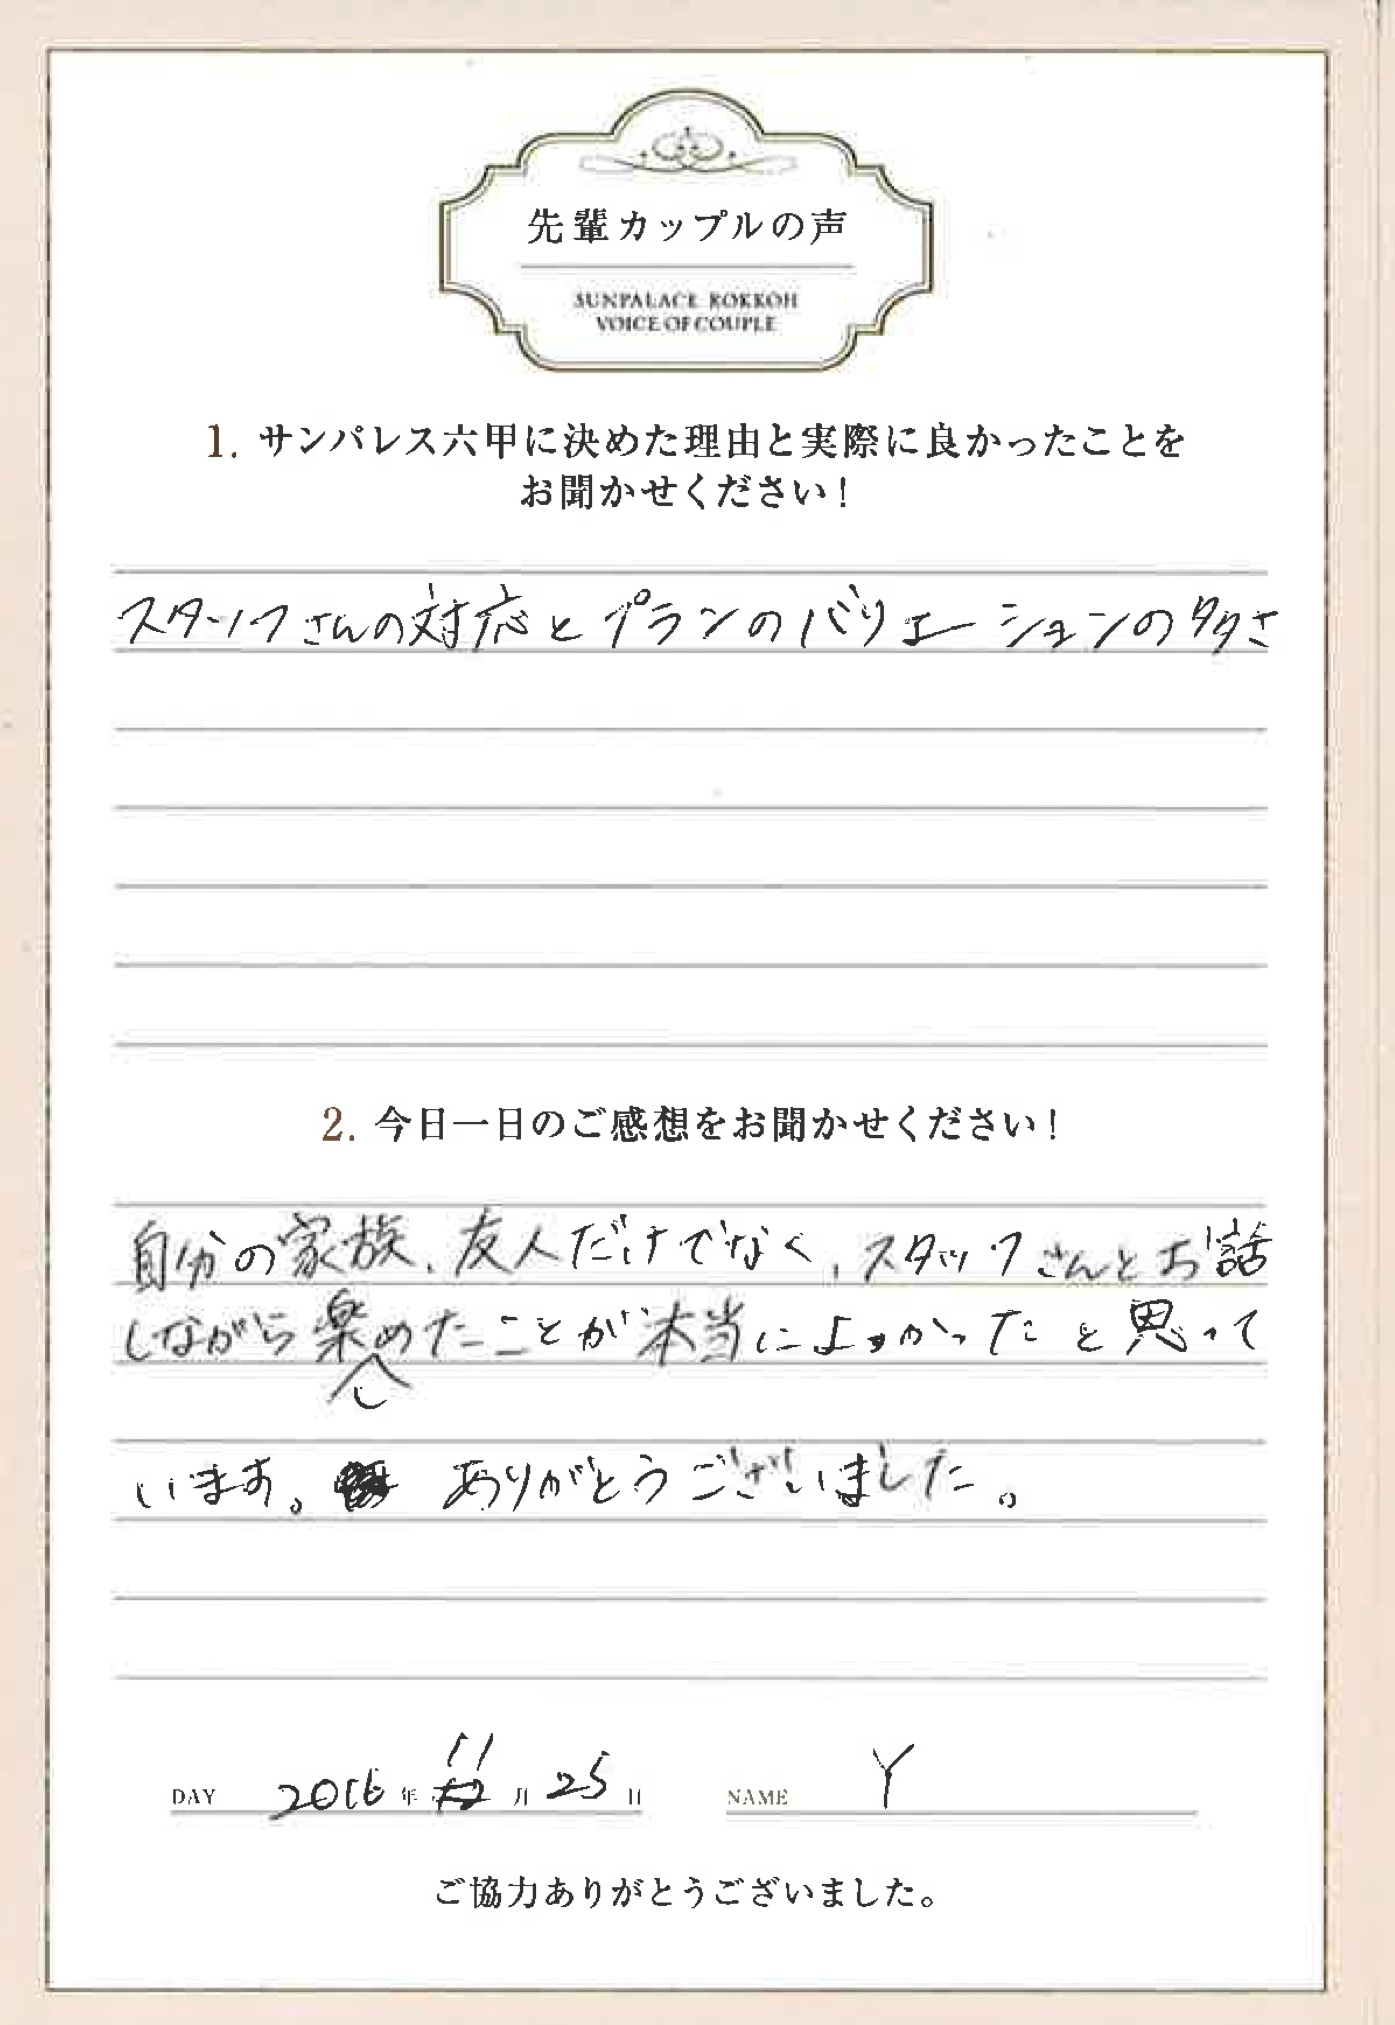 先輩カップルの声
SUNPALACE ROKKOH
VOICE OF COUPLE
1. サンパレス六甲に決めた理由と実際に良かったことを
お聞かせください！
スタッフさんの対応とプランのバリエーションの多さ
2. 今日一日のご感想をお聞かせください！
自分の家族、友人だけでなく、スタッフさんとお話
しながら楽しめたことが本当によかったと思って
います。 ありがとうございました。
DAY 2016年 11月 25日 NAME Y
ご協力ありがとうございました。